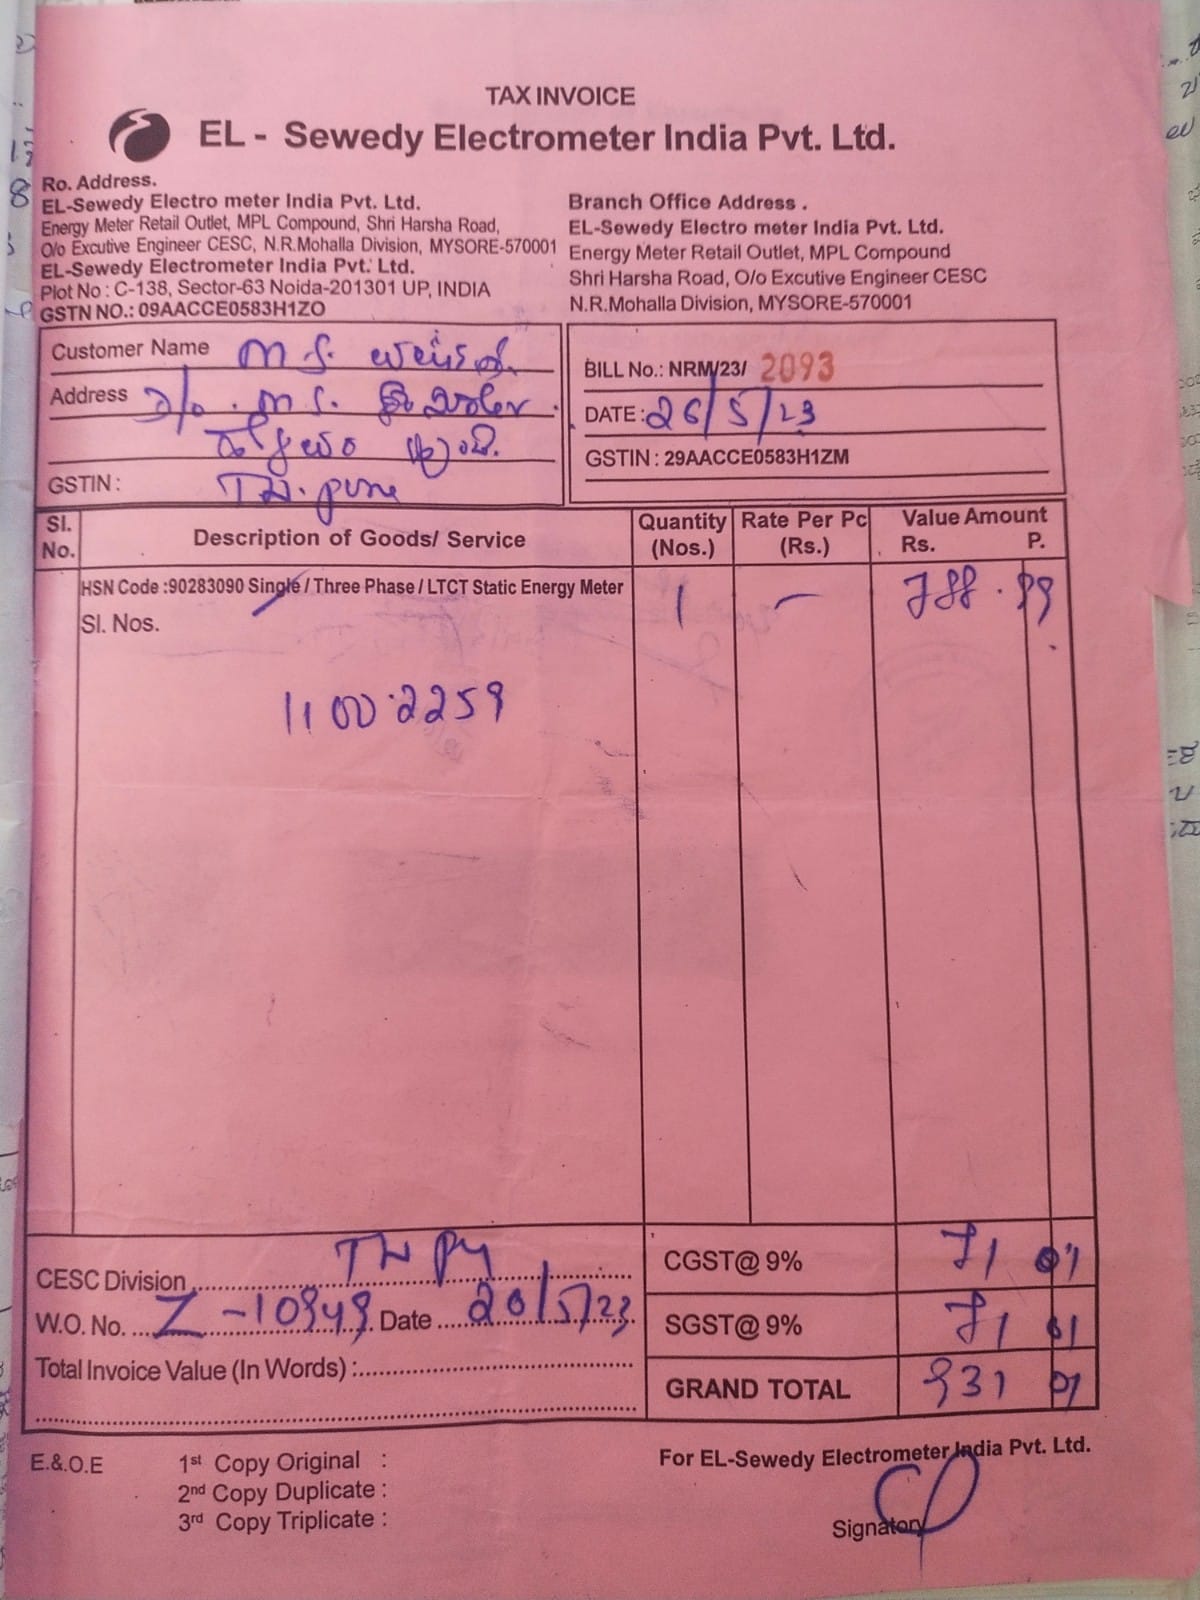 TAX INVOICE
EL - Sewedy Electrometer India Pvt. Ltd.
Ro. Address.
EL-Sewedy Electro meter India Pvt. Ltd.
Energy Meter Retail Outlet, MPL Compound, Shri Harsha Road,
O/o Excutive Engineer CESC, N.R.Mohalla Division, MYSORE-570001
EL-Sewedy Electrometer India Pvt. Ltd.
Plot No : C-138, Sector-63 Noida-201301 UP, INDIA
GSTN NO.: 09AACCE0583H1ZO
Branch Office Address .
EL-Sewedy Electro meter India Pvt. Ltd.
Energy Meter Retail Outlet, MPL Compound
Shri Harsha Road, O/o Excutive Engineer CESC
N.R.Mohalla Division, MYSORE-570001
Customer Name M. S.
Address M S.
GSTIN : T.N. pura
BILL No.: NRM/23/ 2093
DATE : 26/5/23
GSTIN : 29AACCE0583H1ZM
Sl. No. Description of Goods/ Service Quantity (Nos.) Rate Per Pc (Rs.) Value Amount Rs. P.
HSN Code :90283090 Single / Three Phase / LTCT Static Energy Meter 1 - 788.99
Sl. Nos.
11002259
CESC Division TN Py
W.O. No. Z-10949 Date 20/5/23
Total Invoice Value (In Words) :
CGST@ 9% 71 01
SGST@ 9% 71 01
GRAND TOTAL 931 01
E.&.O.E
1st Copy Original :
2nd Copy Duplicate :
3rd Copy Triplicate :
For EL-Sewedy Electrometer India Pvt. Ltd.
Signatory